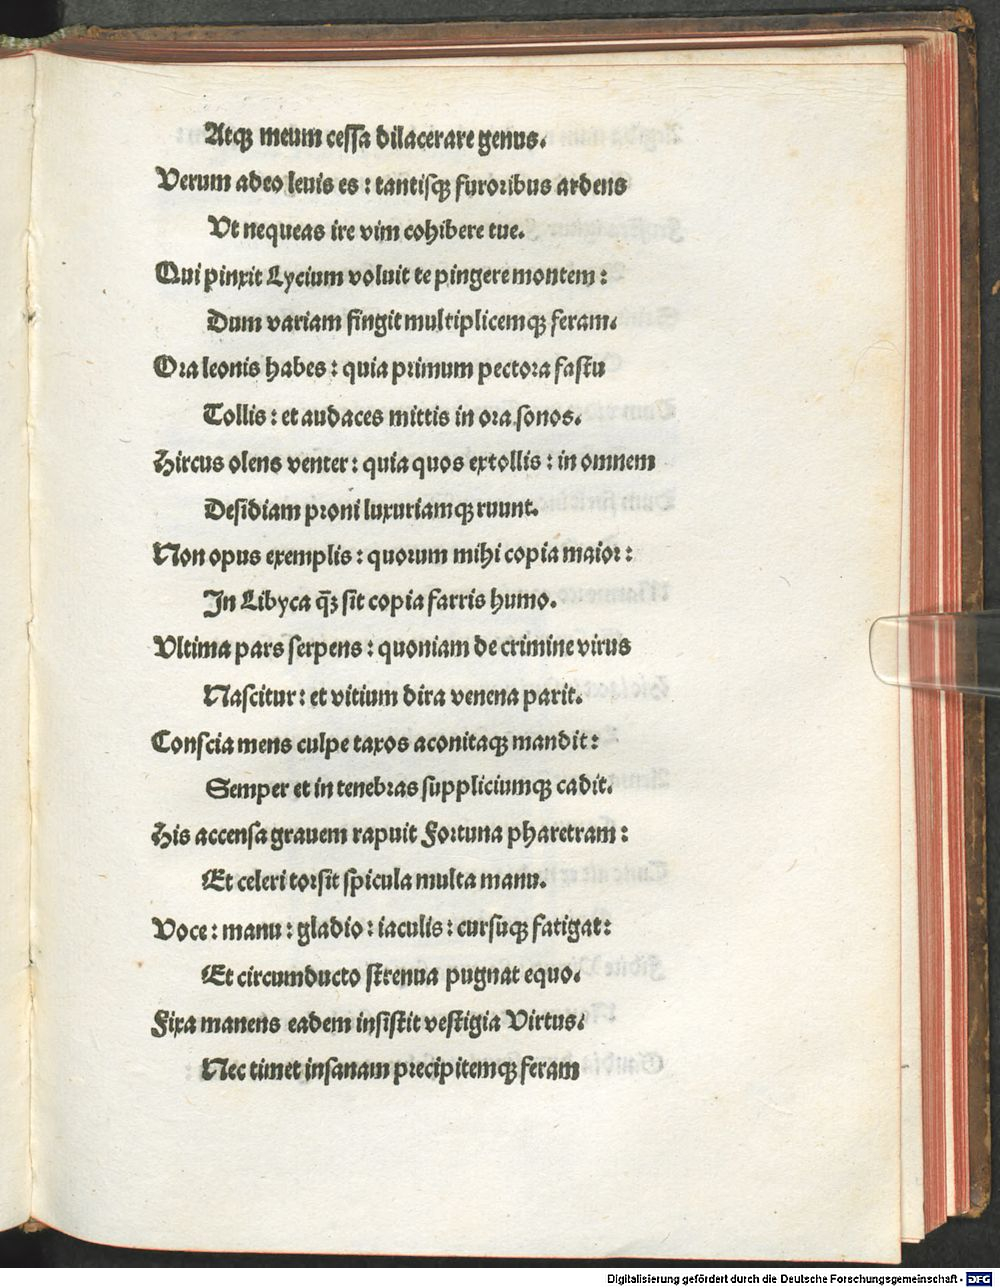 Atqꝫ meum cessa dilacerare genus.
Verum adeo leuis es : tantisqꝫ furoribus ardens
Vt nequeas ire vim cohibere tue.
Qui pinxit Lycium voluit te pingere montem :
Dum variam fingit multiplicemqꝫ feram.
Ora leonis habes : quia primum pectora fastu
Tollis : et audaces mittis in ora sonos.
Hircus olens venter : quia quos extollis : in omnem
Desidiam proni luxuriamqꝫ ruunt.
Non opus exemplis : quorum mihi copia maior :
In Libyca qꝫ̃ sit copia farris humo.
Vltima pars serpens : quoniam de crimine virus
Nascitur : et vitium dira venena parit.
Conscia mens culpe taxos aconitaqꝫ mandit :
Semper et in tenebras suppliciumqꝫ cadit.
His accensa grauem rapuit Fortuna pharetram :
Et celeri torsit spicula multa manu.
Voce : manu : gladio : iaculis : cursuqꝫ fatigat :
Et circumducto strenua pugnat equo.
Fixa manens eadem insistit vestigia Virtus.
Nec timet insanam precipitemqꝫ feram
Digitalisierung gefördert durch die Deutsche Forschungsgemeinschaft - DFG